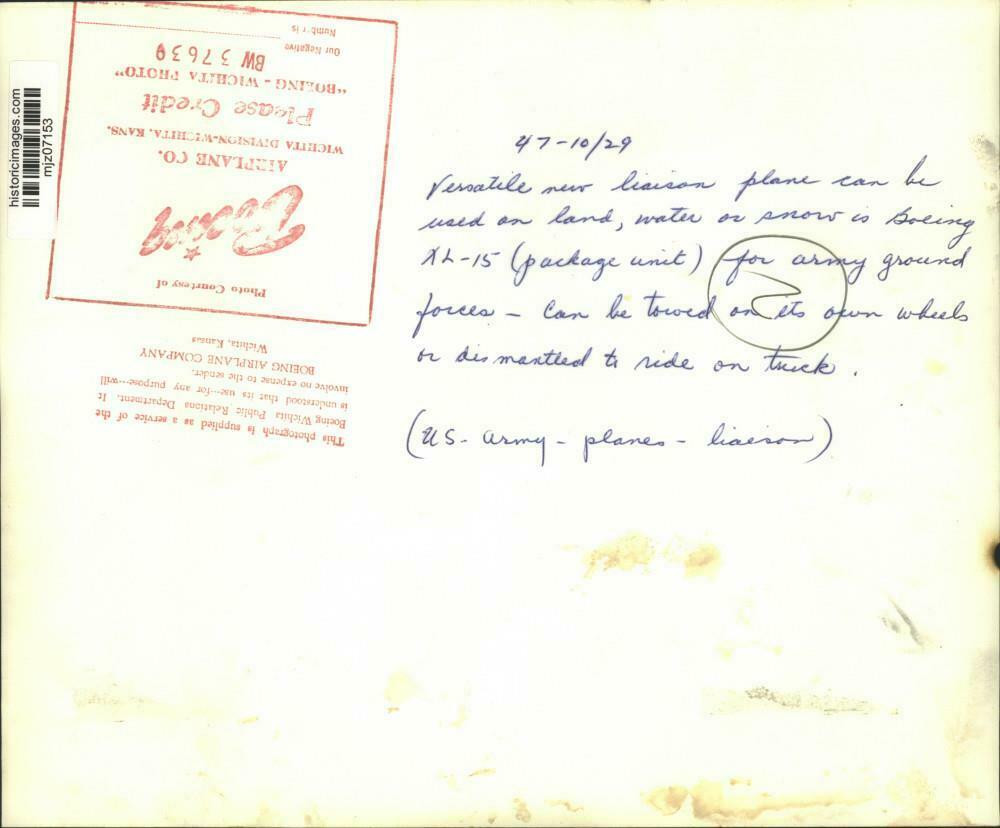 historicimages.com
mjz07153
Photo Courtesy of
Boeing
AIRPLANE CO.
WICHITA DIVISION-WICHITA, KANS.
Please Credit
"BOEING - WICHITA PHOTO"
Our Negative
Number is
BW 37639
This photograph is supplied as a service of the
Boeing Wichita Public Relations Department. It
is understood that its use---for any purpose---will
involve no expense to the sender.
BOEING AIRPLANE COMPANY
Wichita, Kansas
47-10/29
Versatile new liaison plane can be
used on land, water or snow is Boeing
XL-15 (package unit) for army ground
forces - Can be towed on its own wheels
or dismantled to ride on truck.
(US - Army - planes - liaison)